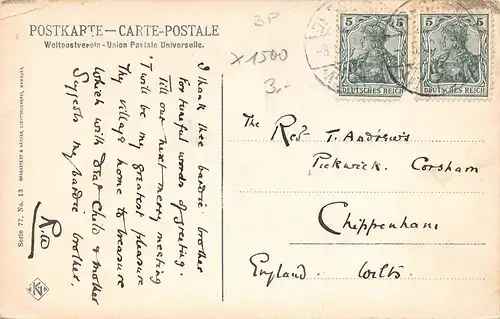 POSTKARTE — CARTE-POSTALE
Weltpostverein - Union Postale Universelle.
3P
x1500
3.-
5 5
DEUTSCHES REICH
5 5
DEUTSCHES REICH
I thank thee bardie brother
For tuneful words of greeting.
Till our next merry meeting
'T will be my greatest pleasure
Thy village home to treasure
Which with Child & Mother
Suggests my bardie brother.
R.W
The Revd T. Andrews
Pickwick. Corsham
Chippenham
England. Wilts.
Serie 77, No. 13
KN